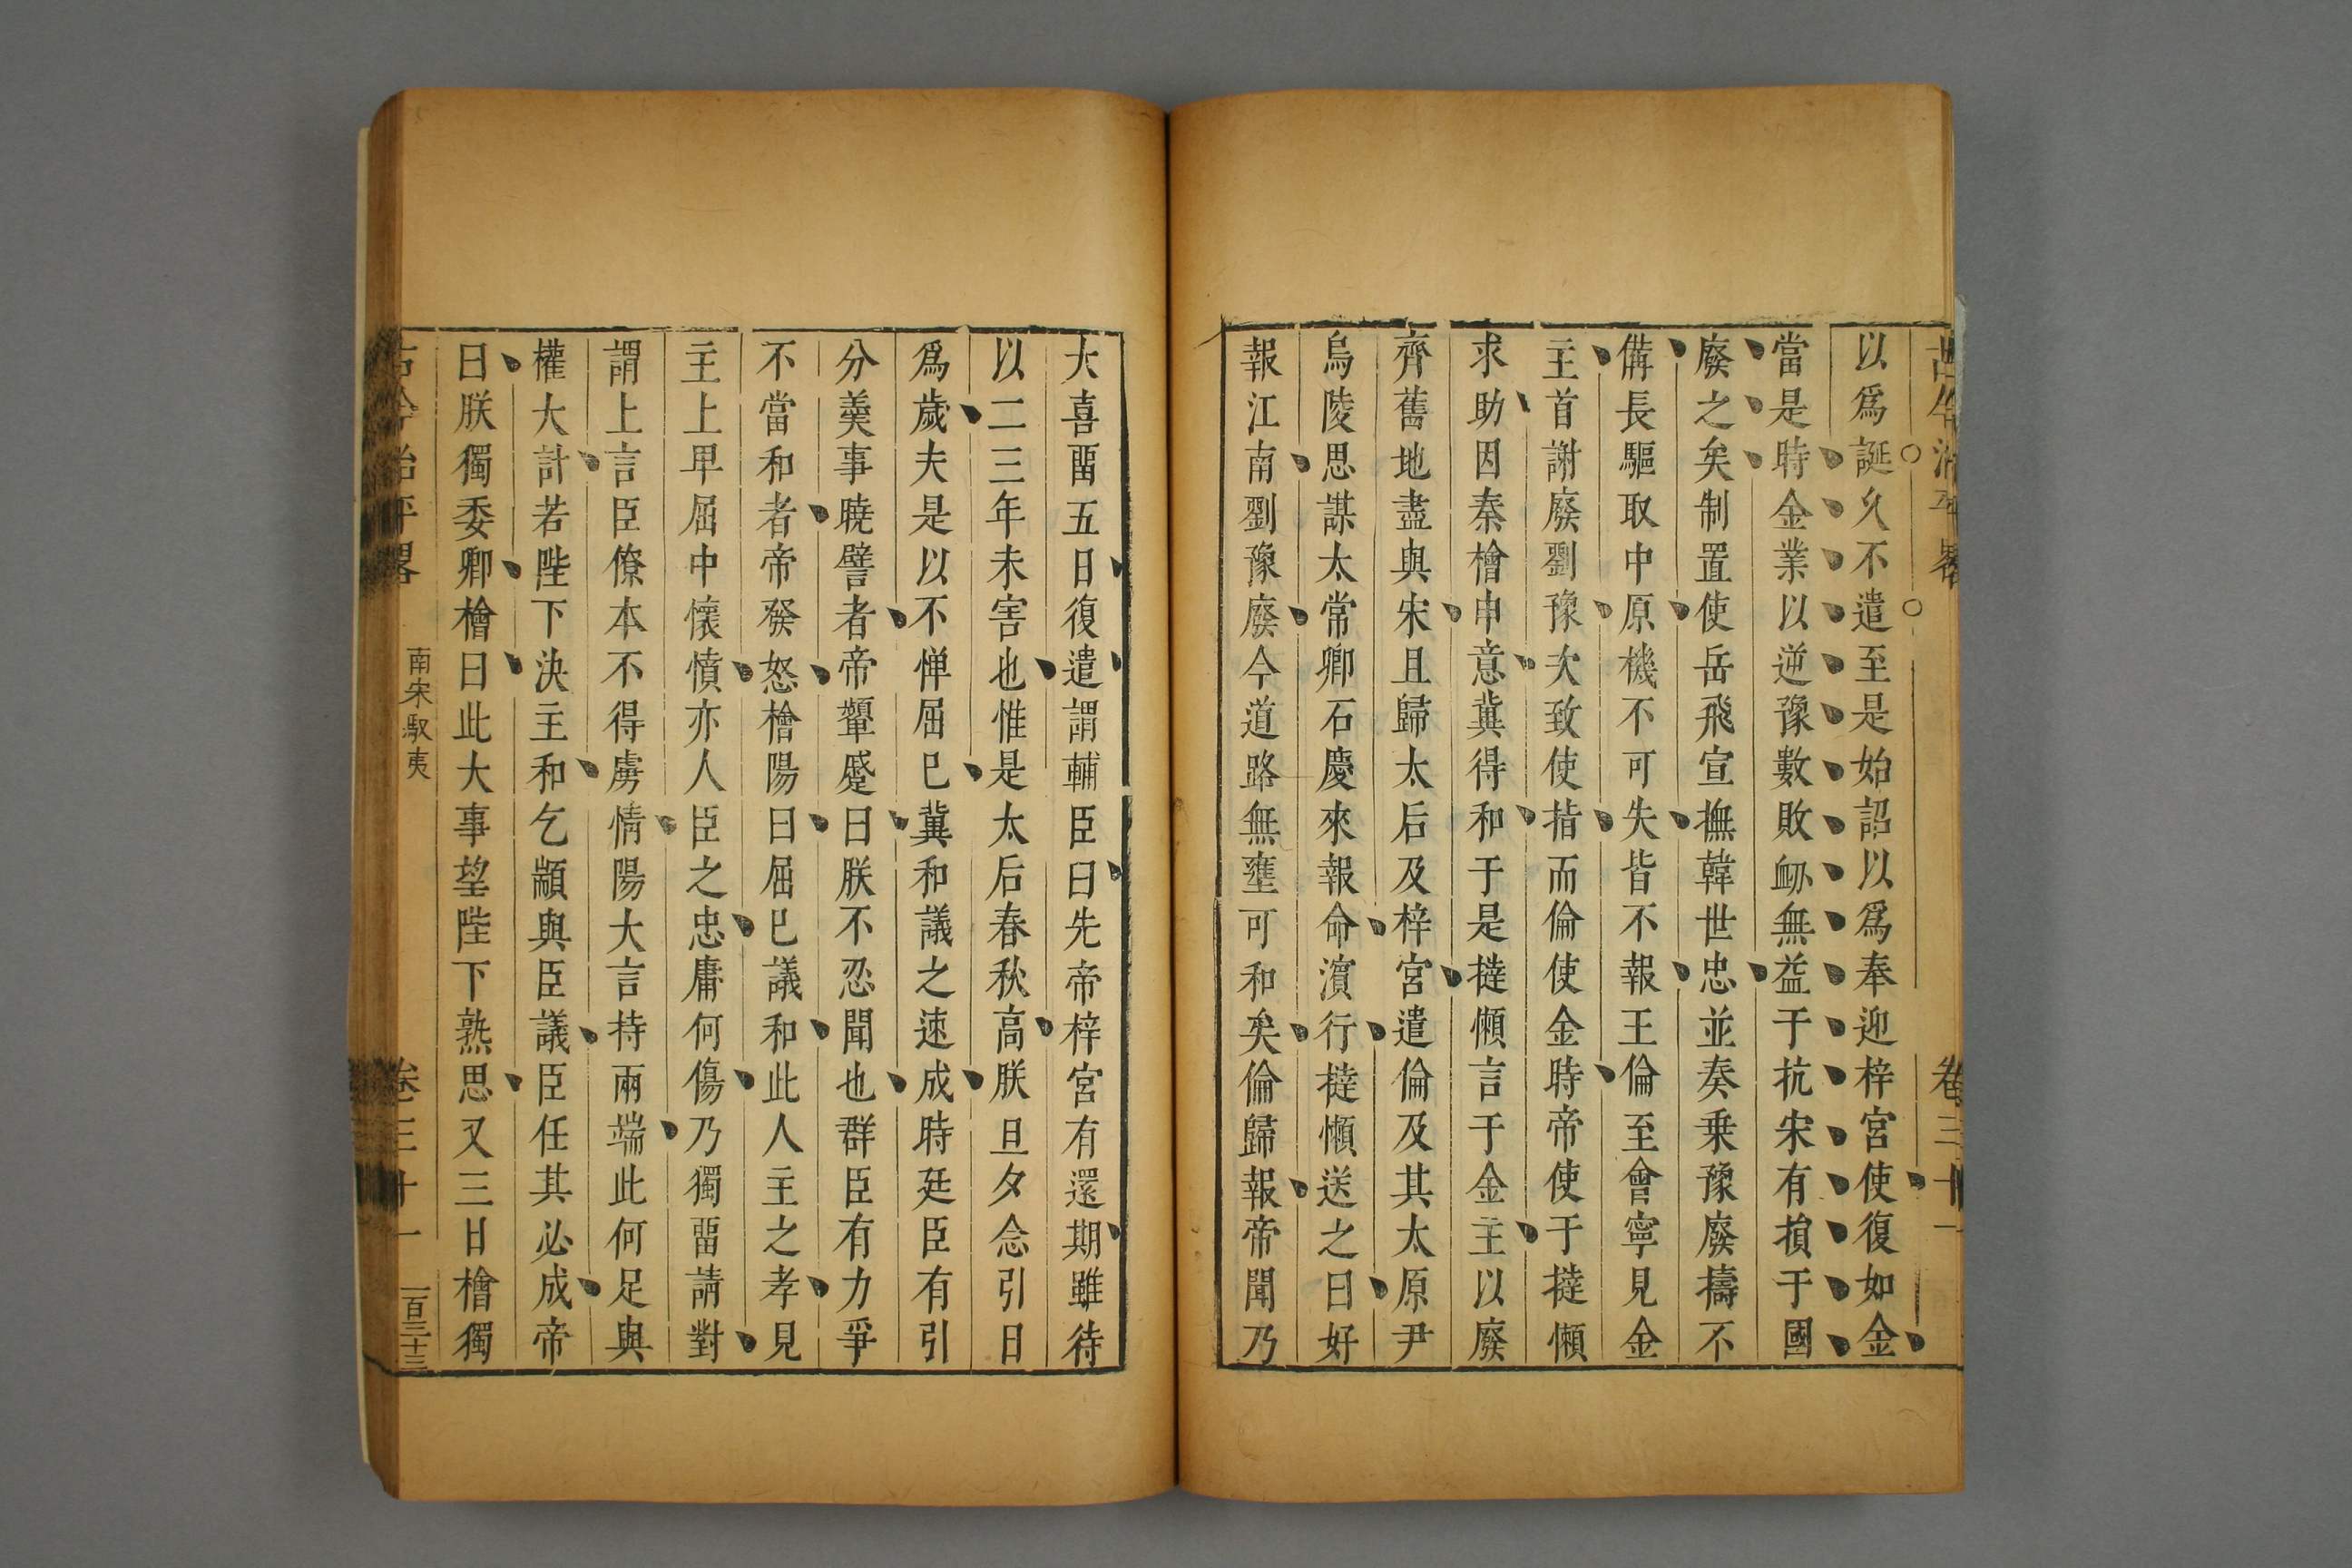 以爲誕久不遣至是始詔以爲奉迎梓宮使復如金
當是時金業以逆豫數敗衂無益于抗宋有損于國
廢之矣制置使岳飛宣撫韓世忠並奏乗豫廢擣不
備長驅取中原機不可失皆不報王倫至會寧見金
主首謝廢劉豫次致使指而倫使金時帝使于撻懶
求助因秦檜申意冀得和于是撻懶言于金主以廢
齊舊地盡與宋且歸太后及梓宮遣倫及其太原尹
烏陵思謀太常卿石慶來報命濵行撻懶送之曰好
報江南劉豫廢今道路無壅可和矣倫歸報帝聞乃
大喜畱五日復遣謂輔臣曰先帝梓宮有還期雖待
以二三年未害也惟是太后春秋高朕旦夕念引日
爲歲夫是以不惮屈巳冀和議之速成時廷臣有引
分羹事曉譬者帝顰蹙曰朕不忍聞也群臣有力爭
不當和者帝發怒檜陽曰屈巳議和此人主之孝見
主上早屈中懷憤亦人臣之忠庸何傷乃獨畱請對
謂上言臣僚本不得虜情陽大言持兩端此何足與
權大計若陛下決主和乞顓與臣議臣任其必成帝
曰朕獨委卿檜曰此大事望陛下熟思又三日檜獨
古今治平畧 南宋馭夷 卷三十一 一百三十三